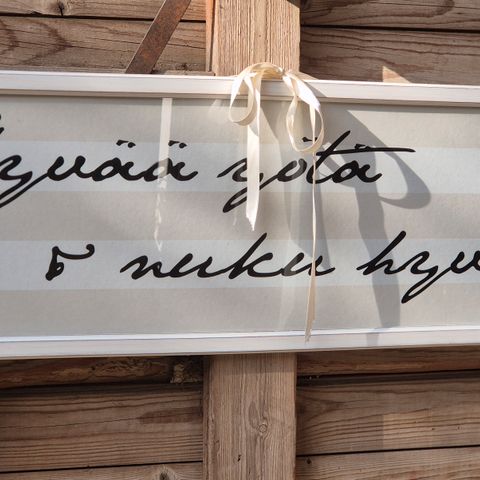 yvää yötä
& nuku hyv